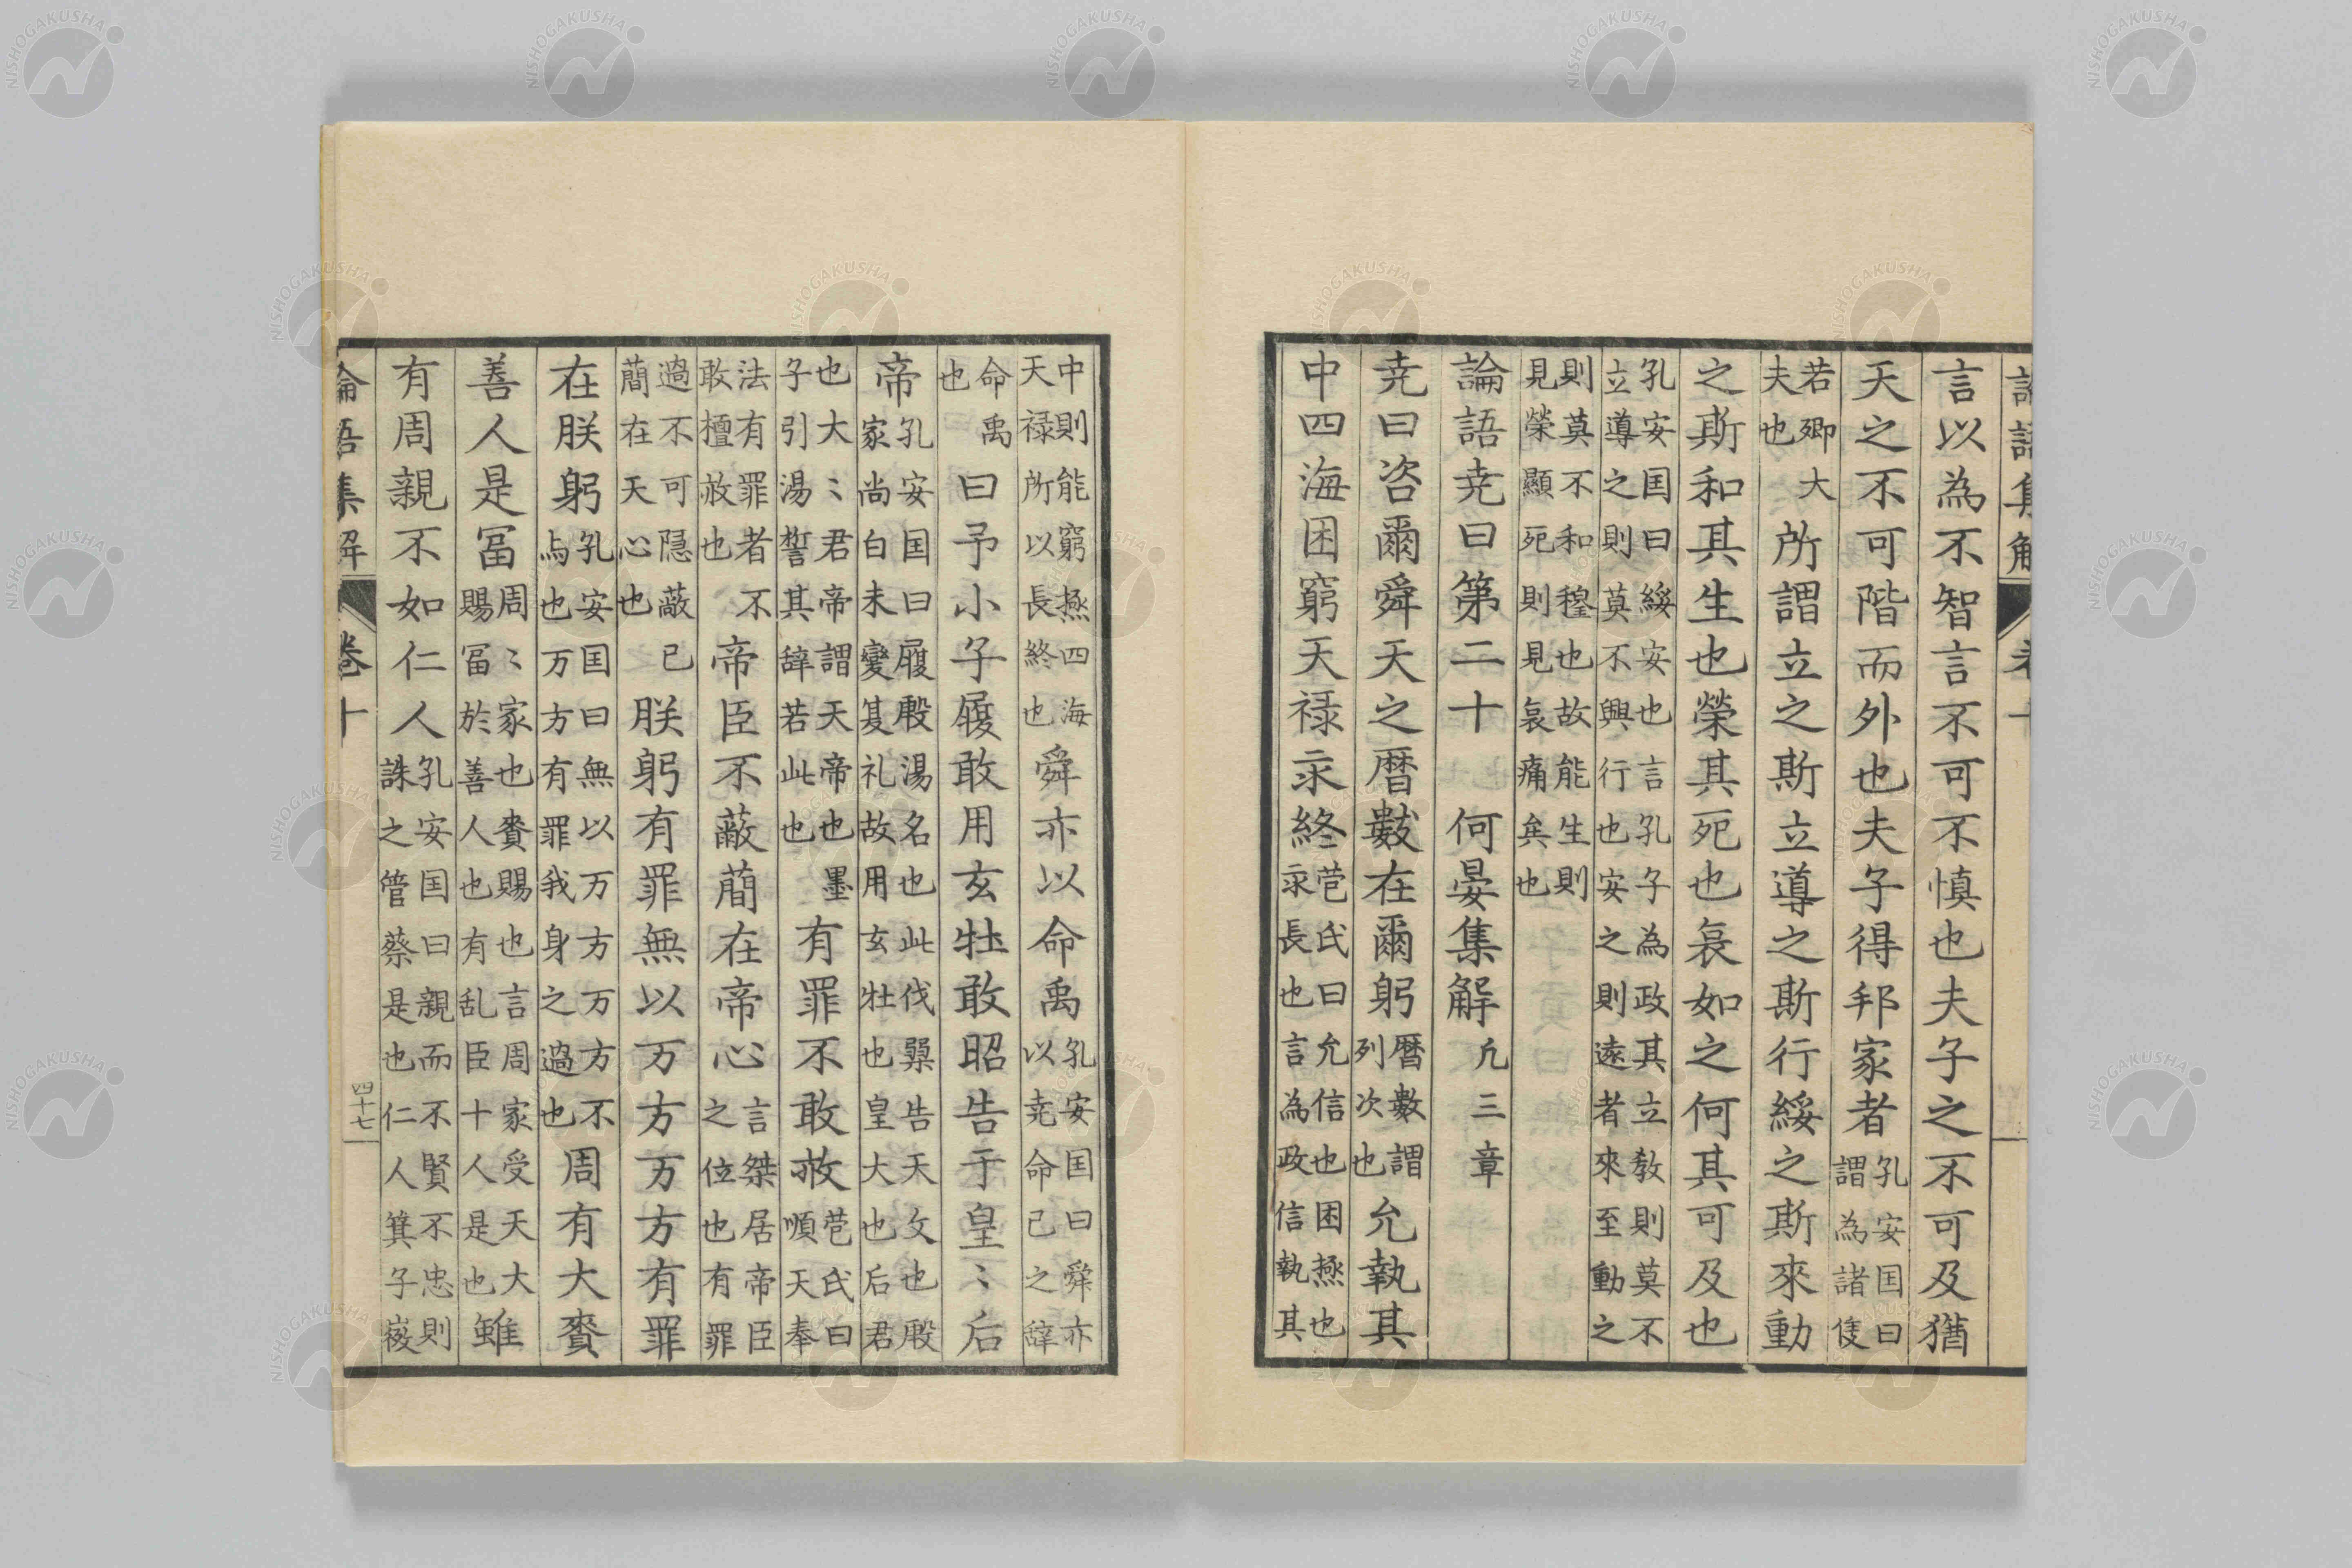 言以為不智言不可不慎也夫子之不可及猶
天之不可階而外也夫子得邦家者孔安国曰謂為諸侯
若卿大夫也所謂立之斯立導之斯行綏之斯來動
之斯和其生也榮其死也哀如之何其可及也
孔安国曰綏安也言孔子為政其立教則莫不立導之則莫不興行也安之則遠者來至動之
則莫不和穆也故能生則見榮顯死則見哀痛矣也
論語尭曰第二十 何晏集解 凡三章
尭曰咨爾舜天之暦數在爾躬暦數謂列次也允執其
中四海困窮天禄永終苞氏曰允信也困極也永長也言為政信執其
中則能窮極四海天禄所以長終也舜亦以命禹孔安国曰舜亦以尭命己之辞
命禹也曰予小子履敢用玄牡敢昭告于皇〻后
帝孔安国曰履殷湯名也此伐桀告天文也殷家尚白未變夏礼故用玄牡也皇大也后君
也大〻君帝謂天帝也墨子引湯誓其辞若此也有罪不敢赦苞氏曰順天奉
法有罪者不敢擅赦也帝臣不蔽蕳在帝心言桀居帝臣之位也有罪
過不可隠蔽已蕳在天心也朕躬有罪無以万方万方有罪
在朕躬孔安国曰無以万方万方不与也万方有罪我身之過也周有大賚
善人是冨周〻家也賚賜也言周家受天大賜冨於善人也有乱臣十人是也雖
有周親不如仁人孔安国曰親而不賢不忠則誅之管蔡是也仁人箕子微
論語集解 卷十 四十七
NISHOGAKUSHA